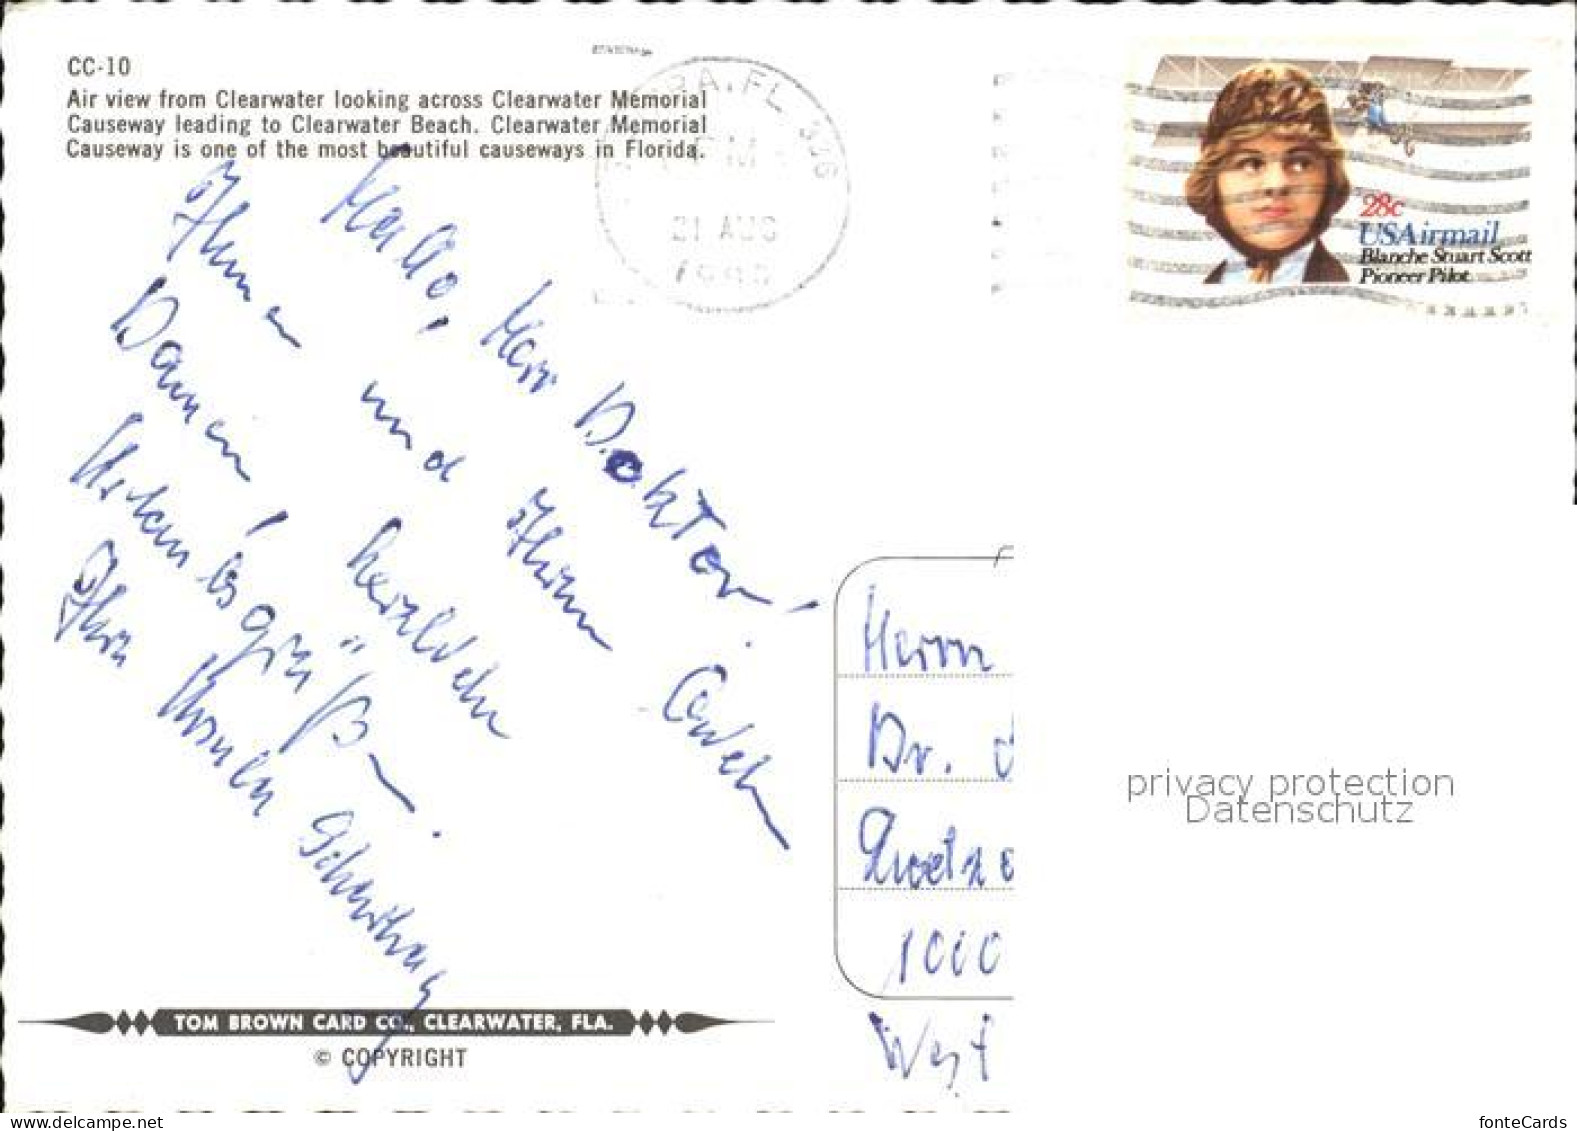 CC-10
Air view from Clearwater looking across Clearwater Memorial
Causeway leading to Clearwater Beach. Clearwater Memorial
Causeway is one of the most beautiful causeways in Florida.
PA, FL 336
PM
21 AUG
28c
USAirmail
Blanche Stuart Scott
Pioneer Pilot
Hallo, Herr Doktor!
Ihnen und Ihren
Damen! herzlichen
Urlaubsgrüße.
Ihre Ursula
Herrn
Dr.
1000
West
privacy protection
Datenschutz
TOM BROWN CARD CO., CLEARWATER, FLA.
© COPYRIGHT
www.ansichtskartenversand.com
fonteCards